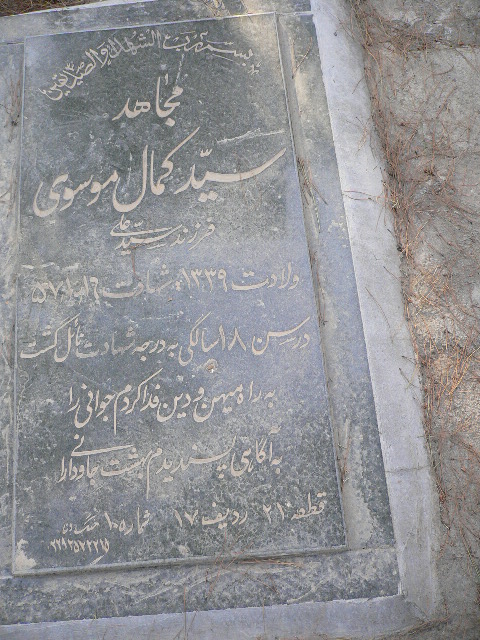 بسم رب الشهداء والصدیقین
مجاهد
سیّد کمال موسوی
فرزند سیّد علی
ولادت ۱۳۳۹ شهادت ۵۷/۱۰/۱۹
در سن ۱۸ سالگی به درجه شهادت نائل گشت
به راه میهن و دین فدا کردم جوانی را
به آگاهی پسندیدم بهشت جاودانی را
قطعه ۲۱ ردیف ۱۷ شماره ۱۰